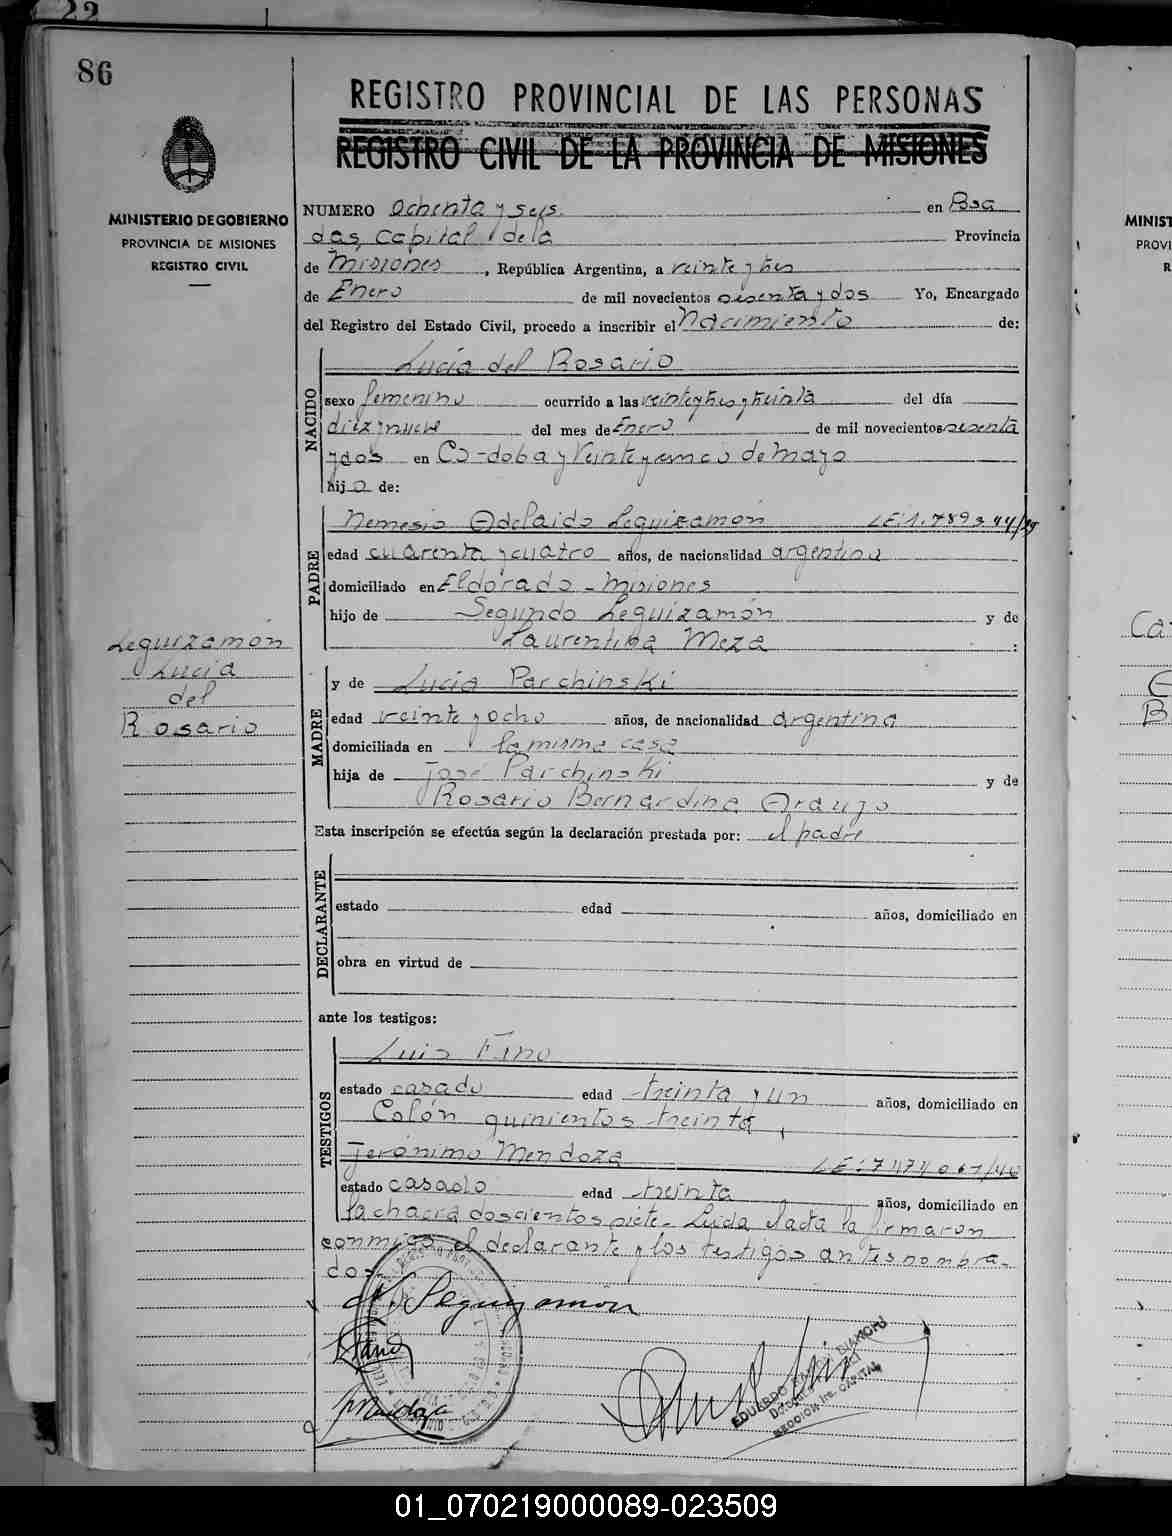 22
86
REGISTRO PROVINCIAL DE LAS PERSONAS
REGISTRO CIVIL DE LA PROVINCIA DE MISIONES
MINISTERIO DE GOBIERNO
PROVINCIA DE MISIONES
REGISTRO CIVIL
NUMERO Ochenta y seis. en Posa
das, Capital de la Provincia
de Misiones, República Argentina, a veinte y tres
de Enero de mil novecientos sesenta y dos Yo, Encargado
del Registro del Estado Civil, procedo a inscribir el Nacimiento de:
NACIDO
Lucia del Rosario
sexo femenino ocurrido a las veinte y tres y treinta del día
diez y nueve del mes de Enero de mil novecientos sesenta
y dos en Co-doba y Veinte y cinco de Mayo
hijo de:
PADRE
Nemesio Adelaido Leguizamón LE: 1.789
edad cuarenta y cuatro años, de nacionalidad argentino
domiciliado en Eldorado - Misiones
hijo de Segundo Leguizamón y de
Laurentina Meza :
Leguizamón
Lucia
del
Rosario
MADRE
y de Lucia Parchinski
edad veinte y ocho años, de nacionalidad argentina
domiciliada en la misma casa
hija de José Parchinski y de
Rosario Bernardina Araujo
Esta inscripción se efectúa según la declaración prestada por: el padre
DECLARANTE
estado edad años, domiciliado en
obra en virtud de
ante los testigos:
TESTIGOS
Luis Fino
estado casado edad treinta y un años, domiciliado en
Colón quinientos treinta,
Jerónimo Mendoza LE:
estado casado edad treinta años, domiciliado en
la chacra doscientos siete- Leida el acta la firmaron
conmigo el declarante y los testigos antes nombra-
dos-
N. Leguizamón
EDUARDO
SECCION 1ra. CAPITAL
MINIST
PROVI
R
Ca
B
01_070219000089-023509